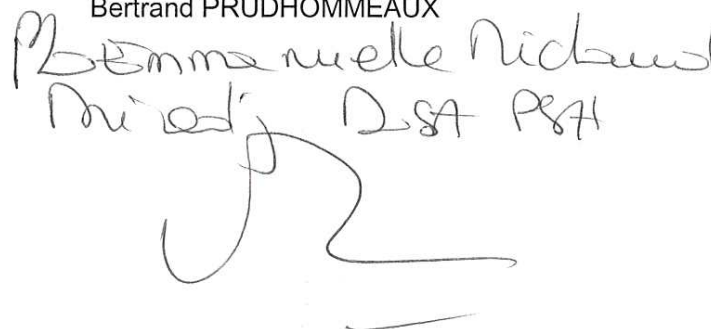 Bertrand PRUDHOMMEAUX
Emmanuelle Michaud
DSA PSH